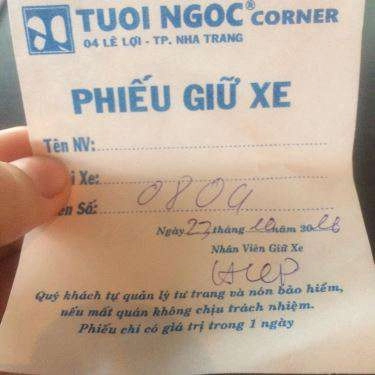 TUOI NGOC® CORNER
04 LÊ LỢI - TP. NHA TRANG
PHIẾU GIỮ XE
Tên NV:
i Xe:
ển Số: 0809
Ngày 22 tháng 10 năm 2016
Nhân Viên Giữ Xe
Quý khách tự quản lý tư trang và nón bảo hiểm,
nếu mất quán không chịu trách nhiệm.
Phiếu chỉ có giá trị trong 1 ngày